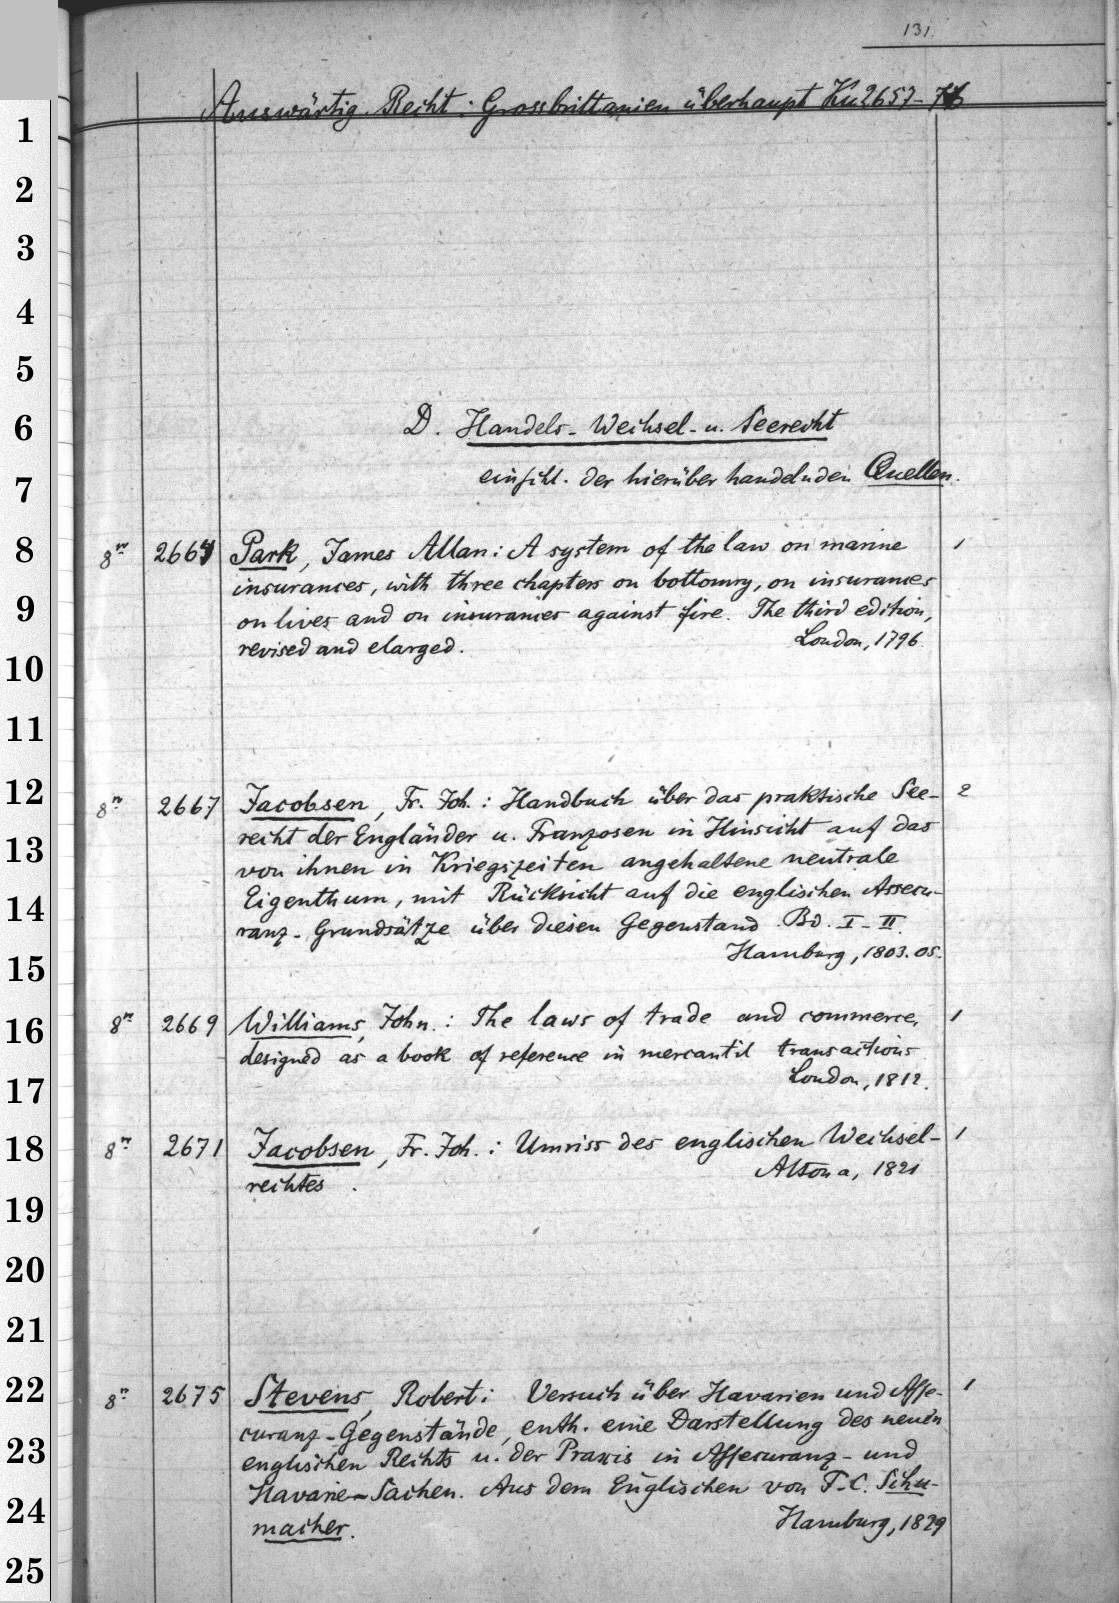 131.
Auswärtig. Recht: Grossbrittanien überhaupt Ku 2657-76
1
2
3
4
5
6 D. Handels- Wechsel- u. Seerecht
7 einschl. der hierüber handelnden Quellen.
8 8º 2664 Park, James Allan: A system of the law on marine 1
insurances, with three chapters on bottomry, on insurances
9 on lives and on insurances against fire. The third edition,
revised and elarged. London, 1796.
10
11
12 8º 2667 Jacobsen, Fr. Joh.: Handbuch über das praktische See- 2
recht der Engländer u. Franzosen in Hinsicht auf das
13 von ihnen in Kriegszeiten angehaltene neutrale
14 Eigenthum, mit Rücksicht auf die englischen Assecu-
ranz-Grundsätze über diesen Gegenstand. Bd. I-II.
15 Hamburg, 1803.05.
16 8º 2669 Williams, John.: The laws of trade and commerce, 1
designed as a book of reference in mercantil transactions
17 London, 1812.
18 8º 2671 Jacobsen, Fr. Joh.: Umriss des englischen Wechsel- 1
rechtes. Altona, 1821
19
20
21
22 8º 2675 Stevens, Robert: Versuch über Havarien und Asse- 1
curanz-Gegenstände, enth. eine Darstellung des neuen
23 englischen Rechts u. der Praxis in Assecuranz- und
Havarie-Sachen. Aus dem Englischen von F.C. Schu-
24 macher. Hamburg, 1829
25